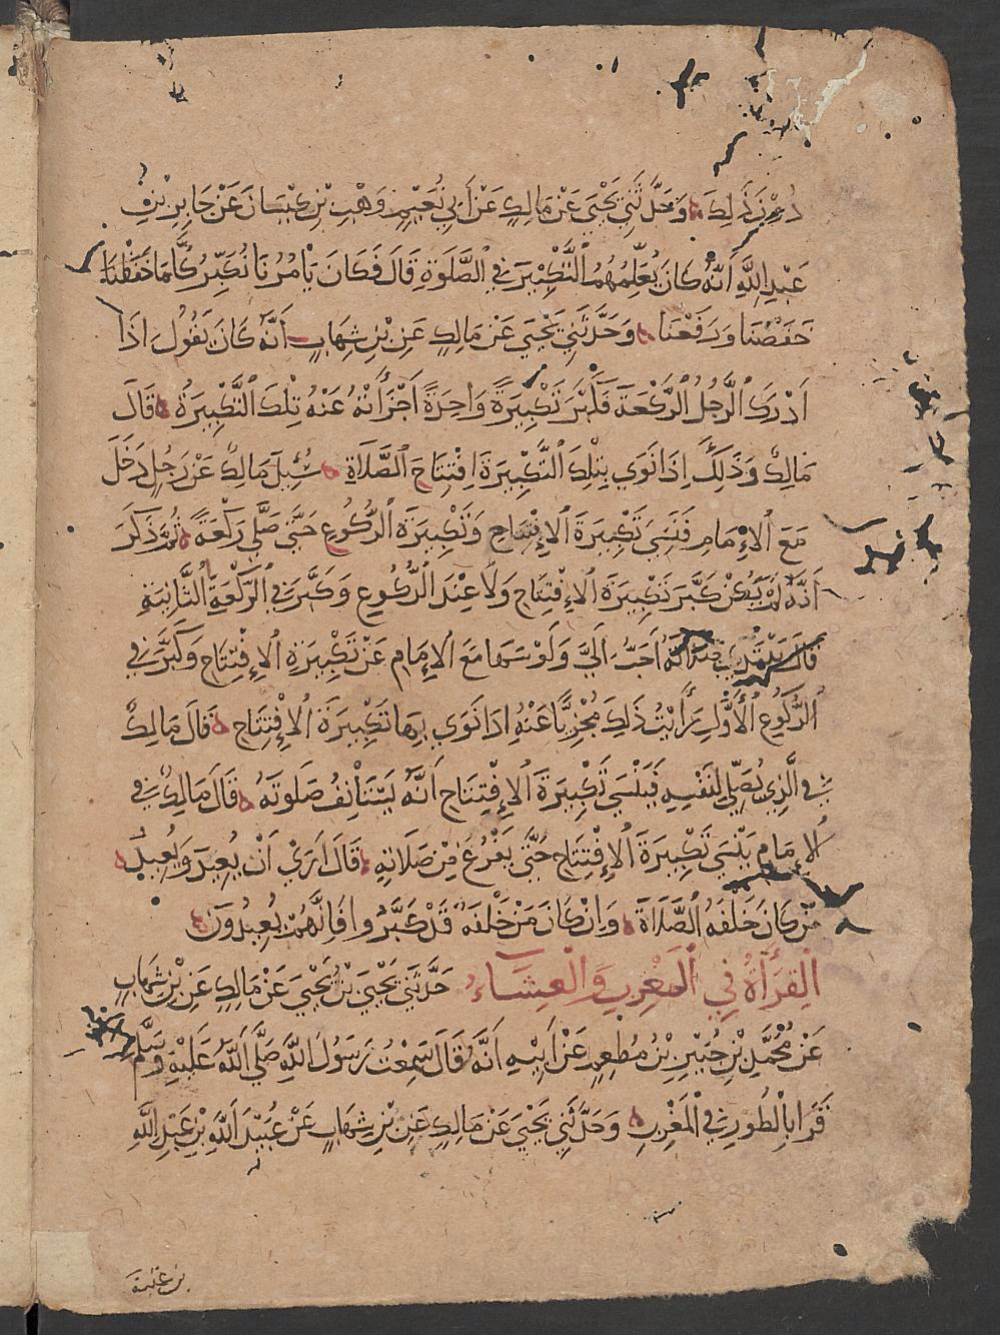 دون ذلك وحدثني يحيى عن مالك عن أبي نعيم وهب بن كيسان عن جابر بن
عبد الله أنه كان يعلمهم التكبير في الصلوة قال فكان يأمرنا نكبر كلما خفظنا
خفضنا ورفعنا وحدثني يحيى عن مالك عن بن شهاب أنه كان يقول اذا
أدرك الرجل الركعة فكبر تكبيرة واحدة أجزأته عنه تلك التكبيرة قال
مالك وذلك اذا نوى بتلك التكبيرة افتتاح الصلاة سئل مالك عن رجل دخل
مع الإمام فنسي تكبيرة الإفتتاح وتكبيرة الركوع حتى صلى ركعة ثم ذكر
أنه لم يكن كبر تكبيرة الإفتتاح ولا عند الركوع وكبر في الركعة الثانية
قال يبتدي صلاته أحب الي ولو سهى مع الإمام عن تكبيرة الإفتتاح وكبر في
الركوع الأول رأيت ذلك مجزيا عنه اذا نوى بها تكبيرة الإفتتاح قال مالك
في الذي يصلي لنفسه فينسى تكبيرة الإفتتاح أنه يستأنف صلوته قال مالك في
الإمام ينسى تكبيرة الإفتتاح حتى يفرغ من صلاته قال أرى أن يعيد ويعيد
من كان خلفه الصلاة وان كان من خلفه قد كبروا فانهم يعيدون
القرأة في المغرب والعشاء حدثني يحيى بن يحيى عن مالك عن بن شهاب
عن محمد بن جبير بن مطعم عن أبيه أنه قال سمعت رسول الله صلى الله عليه وسلم
قرا بالطور في المغرب وحدثني يحيى عن مالك عن بن شهاب عن عبيد الله بن عبد الله
بن عتبة